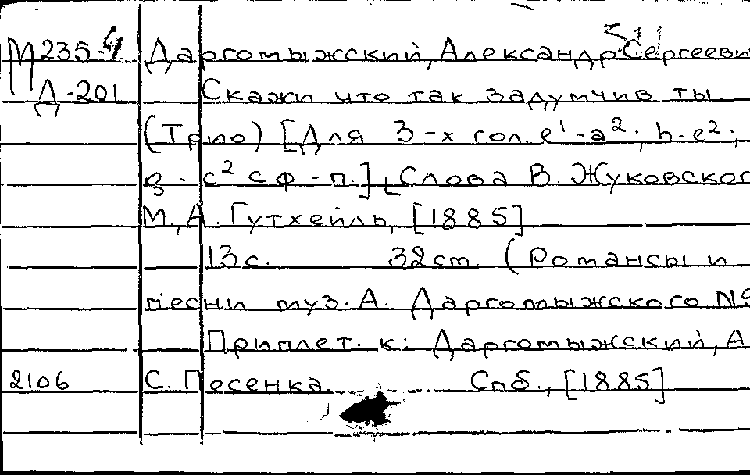 М235.4 Даргомыжский, Александр Сергеевич
Д-201 Скажи что так задумчив ты
(Трио) [Для 3-х гол. e¹-a²; h-e²;
g-c² с ф-п.] Слова В. Жуковског
М., А. Гутхейль, [1885]
13с. 32cm (Романсы и
песни муз. А. Даргомыжского №9
Приплет. к: Даргомыжский, А
2106 С. Песенка. Спб., [1885]